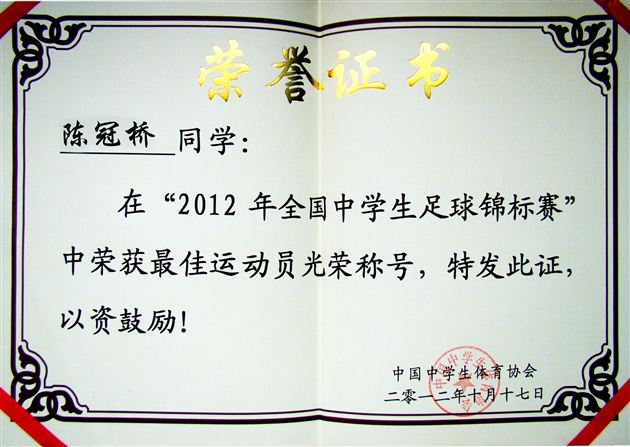 荣誉证书
陈冠桥 同学：
在“2012 年全国中学生足球锦标赛”
中荣获最佳运动员光荣称号，特发此证，
以资鼓励！
中国中学生体育协会
二零一二年十月十七日